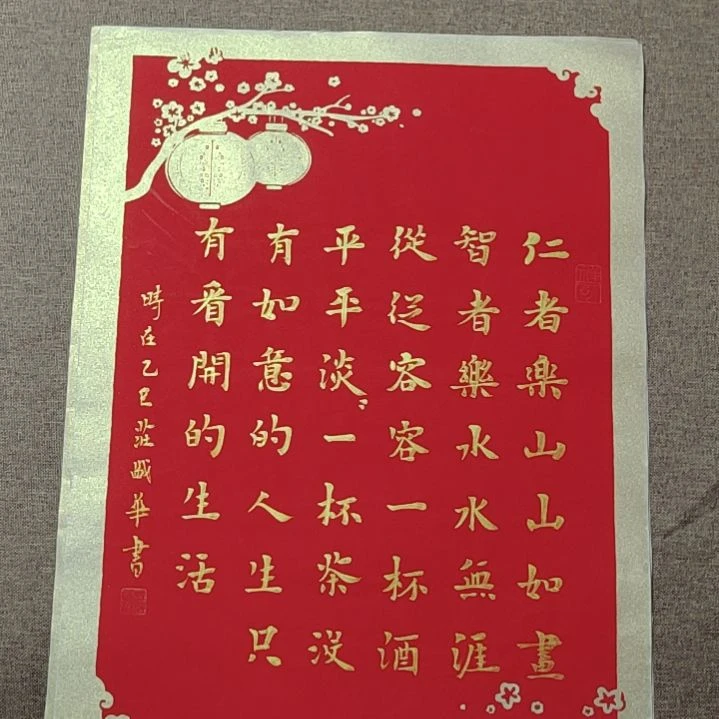 仁者楽山山如畫
智者樂水水無涯
從従容容一杯酒
平平淡〻一杯茶没
有如意的人生只
有看開的生活
時在乙巳莊華書